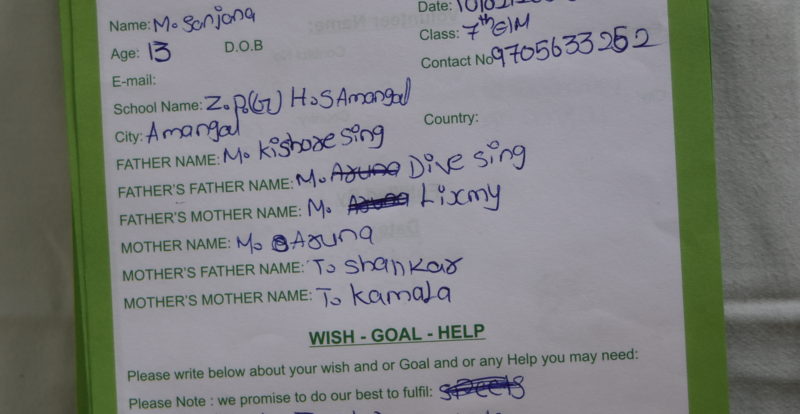 Date: 10/02/20
Name: M. Sanjana
Class: 7th E/M
Age: 13 D.O.B
Contact No 9705633252
E-mail:
School Name: Z.P.(G) H.S Amangal
City: Amangal Country:
FATHER NAME: M. Kishore sing
FATHER'S FATHER NAME: M. Aruna Dive sing
FATHER'S MOTHER NAME: M. Lixmy
MOTHER NAME: M. Aruna
MOTHER'S FATHER NAME: T. Shankar
MOTHER'S MOTHER NAME: T. Kamala
WISH - GOAL - HELP
Please write below about your wish and or Goal and or any Help you may need:
Please Note : we promise to do our best to fulfil: